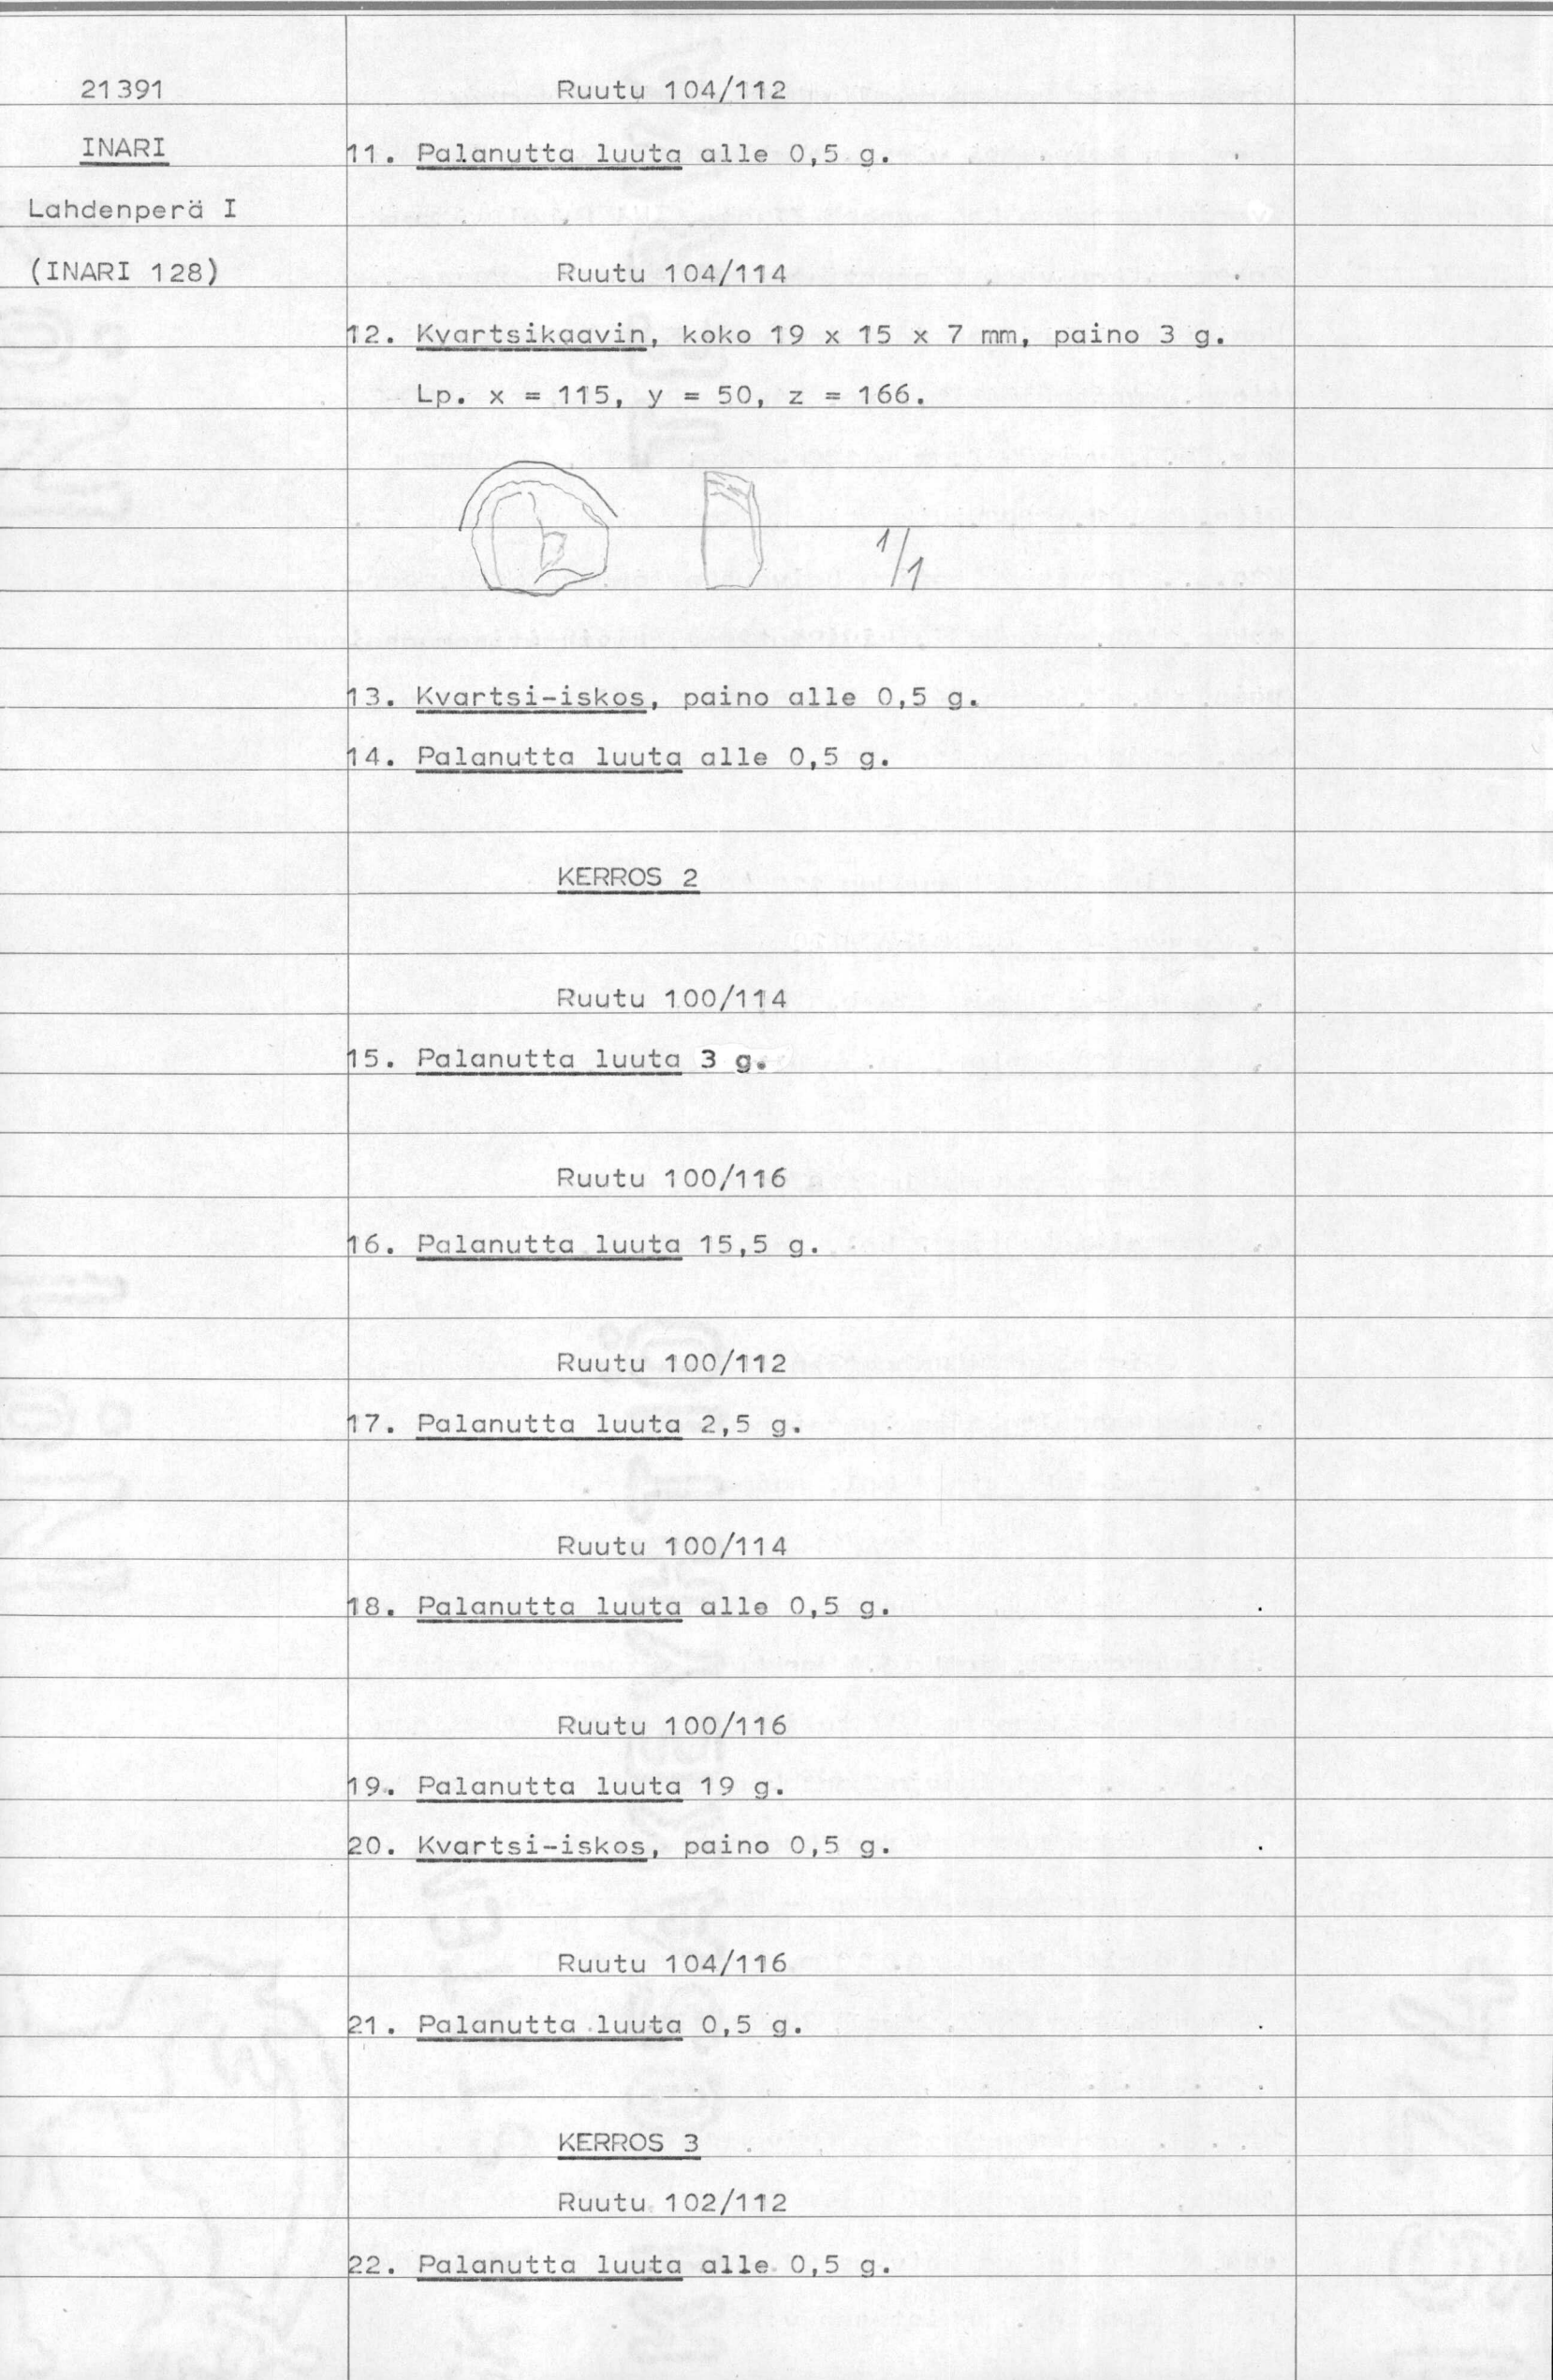 21391
INARI
Lahdenperä I
(INARI 128)
Ruutu 104/112
11. Palanutta luuta alle 0,5 g.
Ruutu 104/114
12. Kvartsikaavin, koko 19 x 15 x 7 mm, paino 3 g.
Lp. x = 115, y = 50, z = 166.
1/1
13. Kvartsi-iskos, paino alle 0,5 g.
14. Palanutta luuta alle 0,5 g.
KERROS 2
Ruutu 100/114
15. Palanutta luuta 3 g.
Ruutu 100/116
16. Palanutta luuta 15,5 g.
Ruutu 100/112
17. Palanutta luuta 2,5 g.
Ruutu 100/114
18. Palanutta luuta alle 0,5 g.
Ruutu 100/116
19. Palanutta luuta 19 g.
20. Kvartsi-iskos, paino 0,5 g.
Ruutu 104/116
21. Palanutta luuta 0,5 g.
KERROS 3
Ruutu 102/112
22. Palanutta luuta alle 0,5 g.